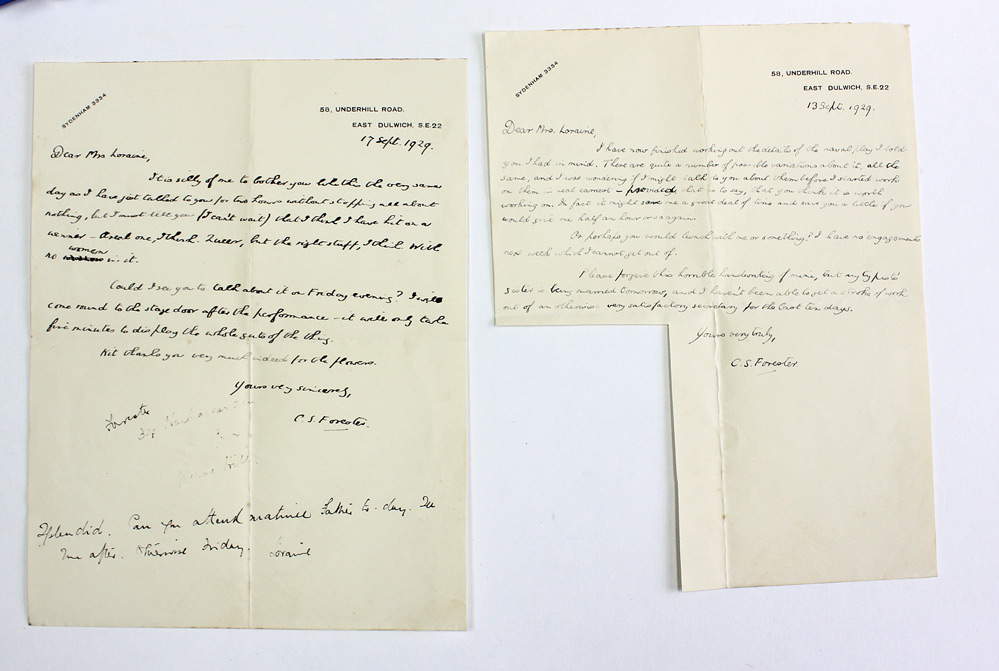 SYDENHAM 3334
58, UNDERHILL ROAD.
EAST DULWICH, S.E.22
17 Sept. 1929.
Dear Mrs Loraine,
It is silly of me to bother you like this the very same
day as I have just talked to you for two hours without stopping all about
nothing, but I must tell you (I can't wait) that I think I have hit on a
winner – a real one, I think. Queer, but the right stuff, I think. With
no women in it.
Could I see you to talk about it on Friday evening? I will
come round to the stage door after the performance – it will only take
five minutes to display the whole guts of the thing.
Kit thanks you very much indeed for the flowers.
Yours very sincerely,
C.S. Forester.
Forester
Splendid. Can you attend matinee to-day. See
me after. Otherwise Friday. Loraine
SYDENHAM 3334
58, UNDERHILL ROAD.
EAST DULWICH, S.E.22
13 Sept. 1929.
Dear Mrs. Loraine,
I have now finished working out the details of the naval play I told
you I had in mind. There are quite a number of possible variations about it, all the
same, and I was wondering if I might talk to you about them before I started work
on them in real earnest – provided, that is to say, that you think it is worth
working on. In fact it might save me a great deal of time and save you a little if you
would give me half an hour or so again.
Or perhaps you would lunch with me or something? I have no engagements
next week which I cannot get out of.
Please forgive this horrible handwriting of mine, but my typist's
sister is being married tomorrow, and I haven't been able to get a stroke of work
out of an otherwise very satisfactory secretary for the last ten days.
Yours very truly,
C.S. Forester.